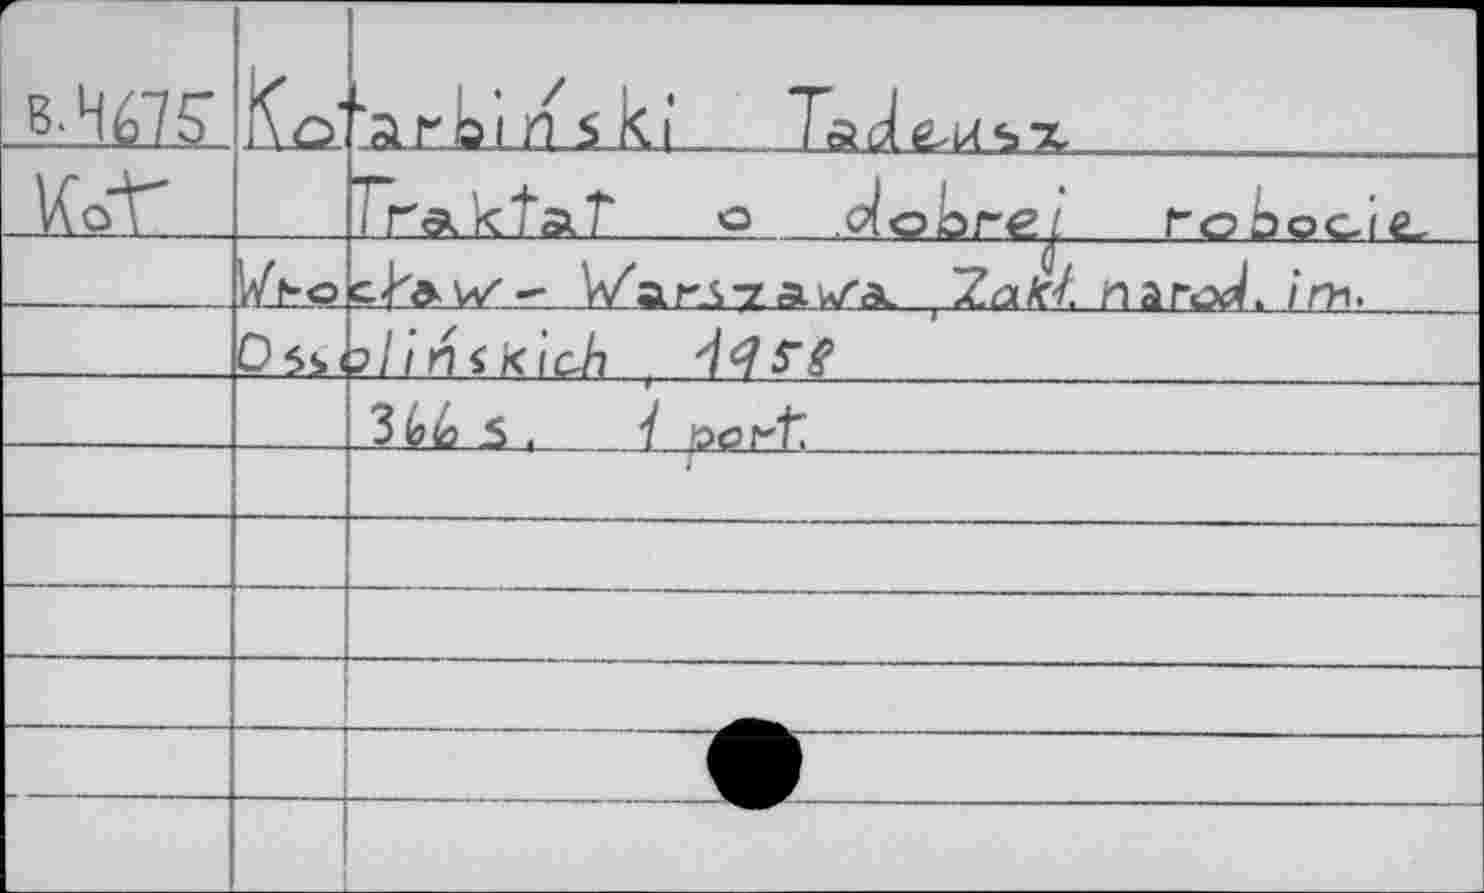 B.4675 Kotarbiński Tadeusz
Kot Traktat o dobrej robocie
Wrocław - Warszawa, Zakł. narod. im.
Ossolińskich, 1958
366 s, 1 port.